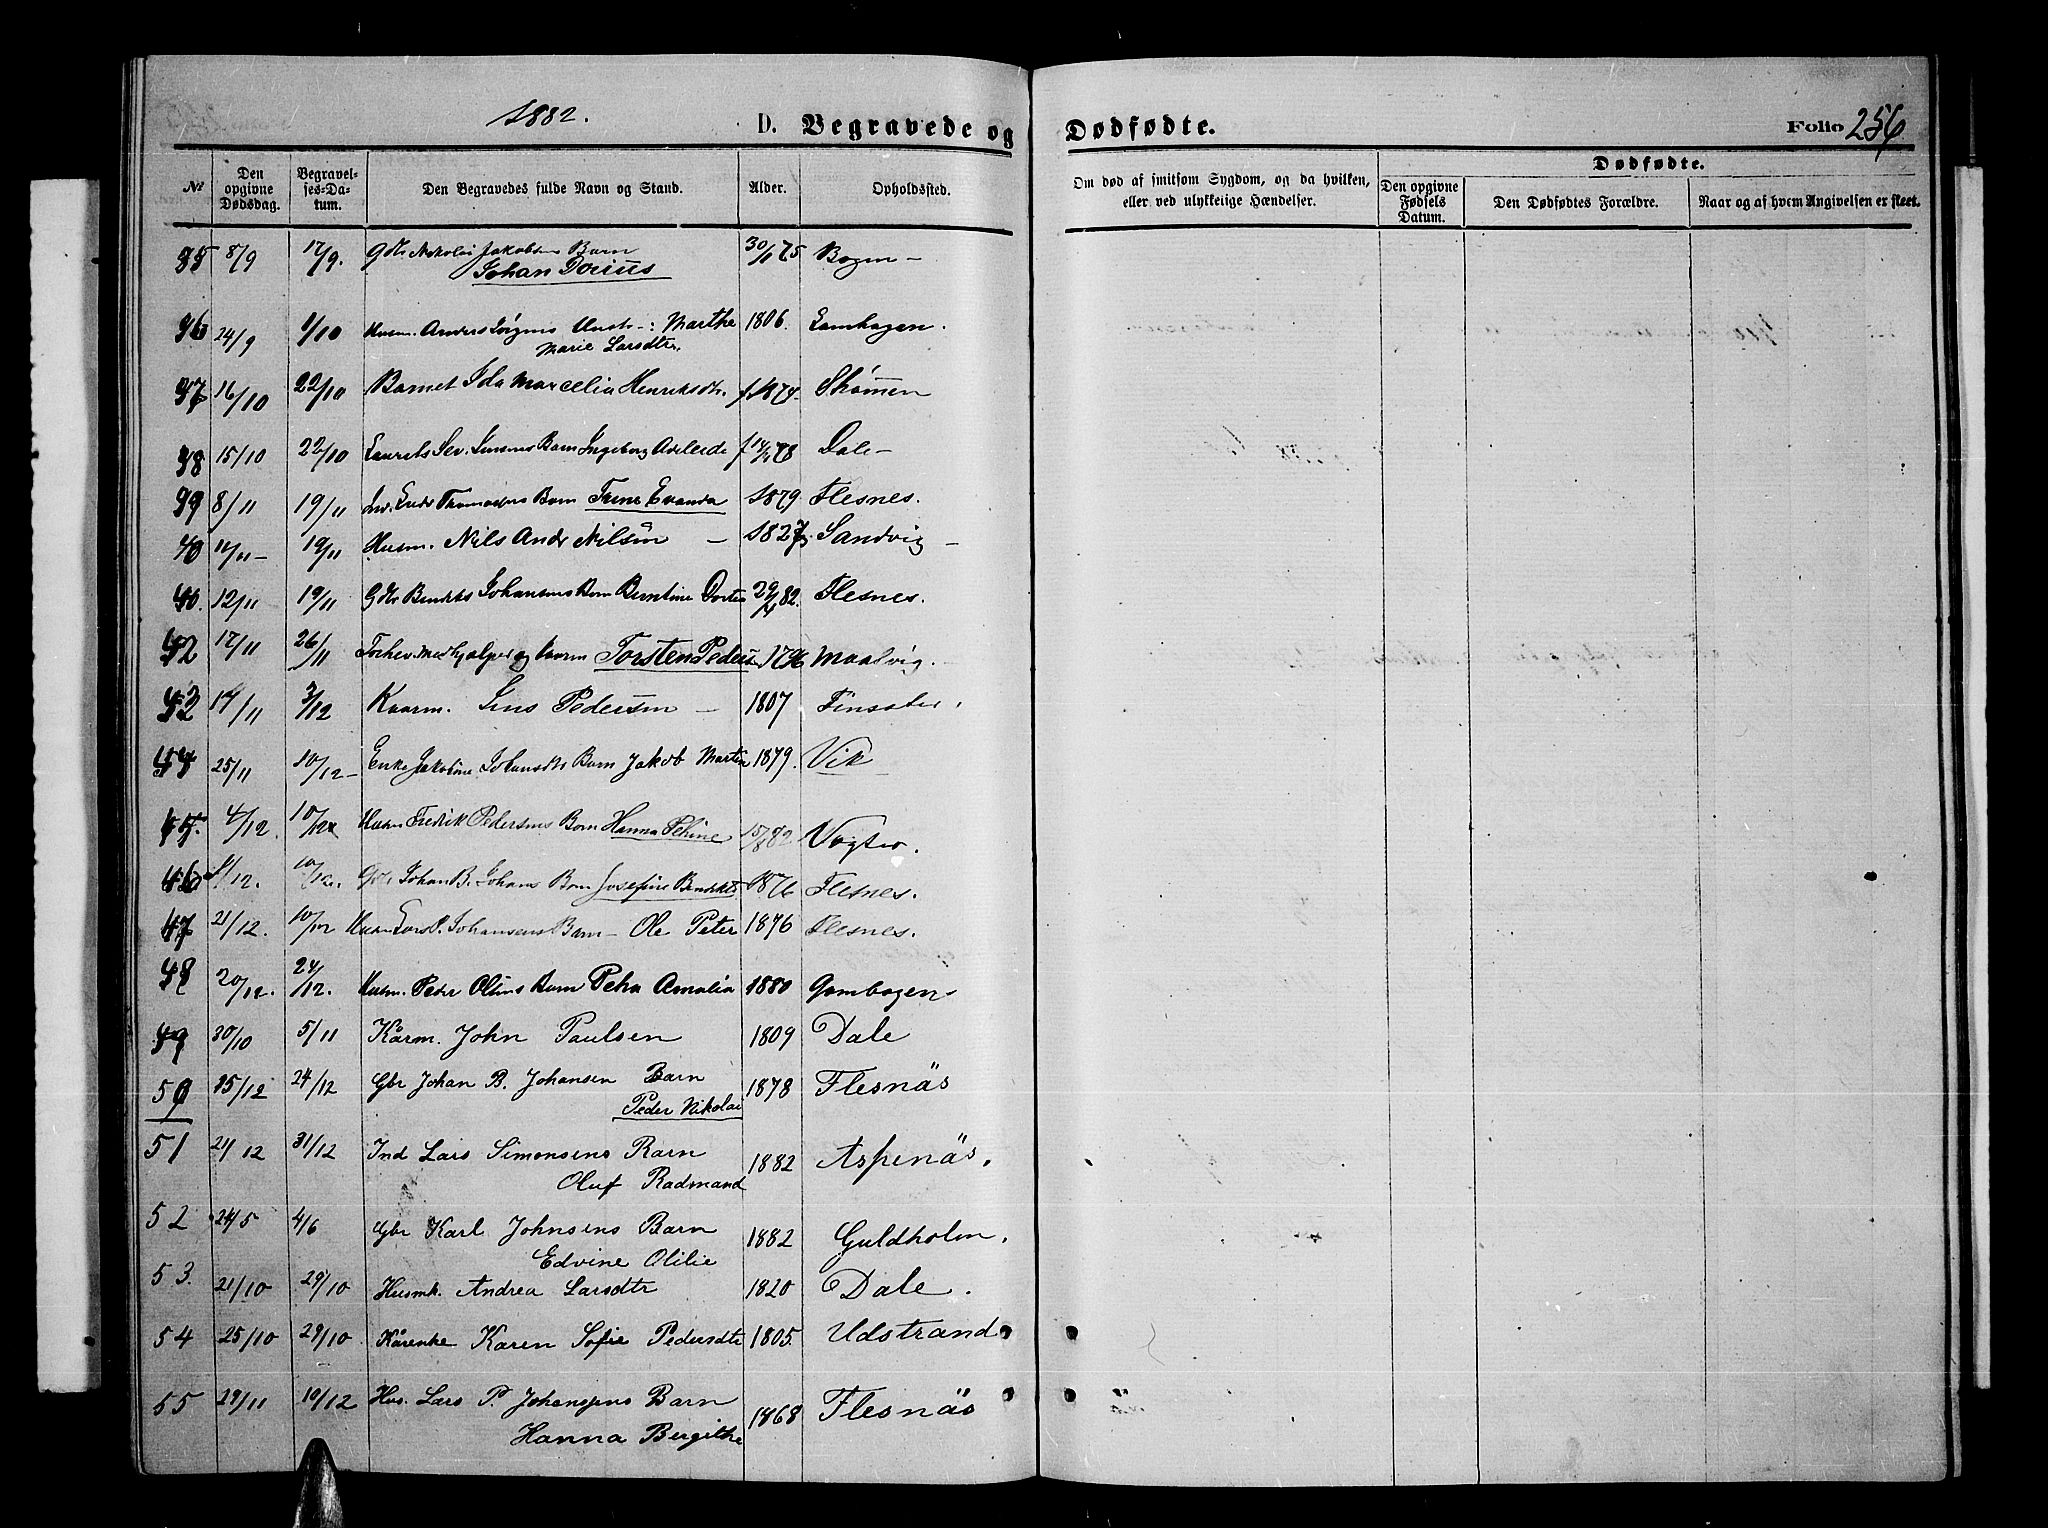 1882.
D. Begravede og Dødfødte.
Folio 256
№
Den opgivne Dødsdag.
Begravelses-Datum.
Den Begravedes fulde Navn og Stand.
Alder.
Opholdssted.
Om død af smitsom Sygdom, og da hvilken, eller ved ulykkelige Hændelser.
Dødfødte.
Den opgivne Fødsels Datum.
Den Dødfødtes Forældre.
Naar og af hvem Angivelsen er skeet.
35 8/9 17/9. Gbr Nikolai Jakobsens Barn 30/1 75 Bogen -
Johan Dorius
36 24/9 1/10 Husm. Anders Enke: Marthe 1806.
Marie Larsdtr.
37 16/10 22/10 Barnet Ida Marcelia Henriksdtr. f. 1874
38 15/10 22/10 Laurits Sev. Jensens Barn Ingeborg Adeleide Dale -
39 8/11 19/11 Barn Trine Evanda 1879 Flesnes.
40 14/11 - 19/11 Husm. Nils Andr Nilsen - 1827 Sandvig -
12/11 19/11 Gbr Bendikts Johansens Barn Berntine 82. Flesnes.
42 17/11 26/11 Medhjælper og Torsten Peders 1796 Maalvig.
43 17/11 3/12 Kaarm. Jens Pedersen - 1807 Finsæter.
44 25/11 10/12 - Enke Jakobine Johansdtr Barn Jakob Martin 1879. Vik
45. 4/12. 10/12 Husm Fredrik Pedersens Barn Hanna Petrine 15/8 82
46 /12. 10/12. Gbr Johan B. Johans Barn Josefine Bendikte 1876 Flesnes.
47 21/12. 10/12 Husm Lars P. Johansens Barn - Ole Peter 1876 Flesnes.
48 20/12. 24/12. Husm. Peder Olsens Barn Petra Amalia 1880
49 30/10 5/11 Kårm. John Paulsen 1809 Dale
50 15/12 24/12 Gbr Johan B. Johansen Barn 1878 Flesnäs
Peder Nikolai
51 21/12 31/12 Ind Lars Simonsens Barn 1882 Aspenäs.
Oluf Radmand
52 24/5 4/6 Gbr Karl Johnsens Barn 1882 Guldholm.
Edvine Otilie
53. 21/10 29/10 Husmk. Andrea Larsdtr 1820 Dale.
54 25/10 29/10 Kårenke Karen Sofie Pedersdtr 1805. Udstrand
55 29/11 10/12 Hus. Lars P. Johanssens Barn 1868 Flesnäs
Hanna Bergithe